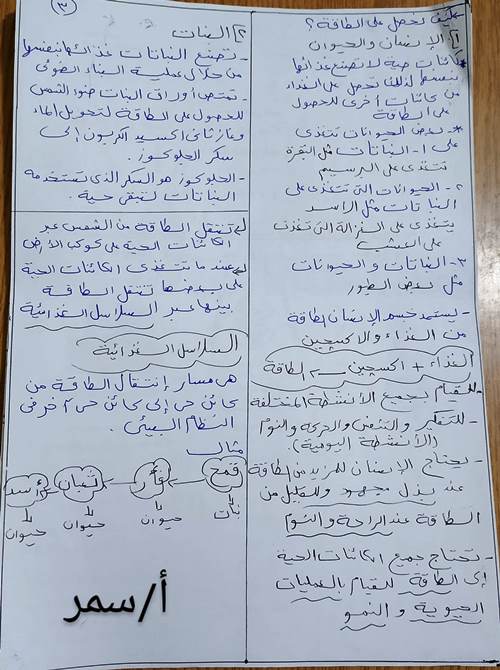 ٣
كيف نحصل على الطاقة؟
١ الإنسان والحيوان
كائنات حية لا تصنع غذائها
بنفسها لذلك تحصل على الغذاء
من كائنات أخرى للحصول
على الطاقة
* بعض الحيوانات تتغذى
على ١- النباتات مثل البقرة
تتغذى على البرسيم
٢- الحيوانات التى تتغذى على
النباتات مثل الأسد
يتغذى على الغزالة التى تغذت
على العشب
٣- النباتات والحيوانات
مثل بعض الطيور
- يستمد جسم الإنسان الطاقة
من الغذاء والاكسجين
الغذاء + اكسجين ← الطاقة
- للقيام بجميع الأنشطة المختلفة
- للتفكير والتنفس والحركة والنوم
(الأنشطة اليومية).
- يحتاج الإنسان للمزيد من الطاقة
عند بذل مجهود والقليل من
الطاقة عند الراحة والنوم
- تحتاج جميع الكائنات الحية
إلى الطاقة للقيام بالعمليات
الحيوية والنمو
٢ النبات
- تصنع النباتات غذائها بنفسها
من خلال عملية البناء الضوئى
- تمتص أوراق النبات ضوء الشمس
للحصول على الطاقة لتحويل الماء
وغاز ثانى اكسيد الكربون إلى
سكر الجلوكوز.
- الجلوكوز هو السكر الذى تستخدمه
النباتات لتبقى حية.
تنتقل الطاقة من الشمس عبر
الكائنات الحية على كوكب الأرض
عندما تتغذى الكائنات الحية
على بعضها تنتقل الطاقة
بينها عبر السلاسل الغذائية
السلاسل الغذائية
هى مسار إنتقال الطاقة من
كائن حى إلى كائن حى آخر فى
النظام البيئى.
مثال
قمح ← فأر ← ثعبان ← أسد
نبات حيوان حيوان حيوان
أ/سمر